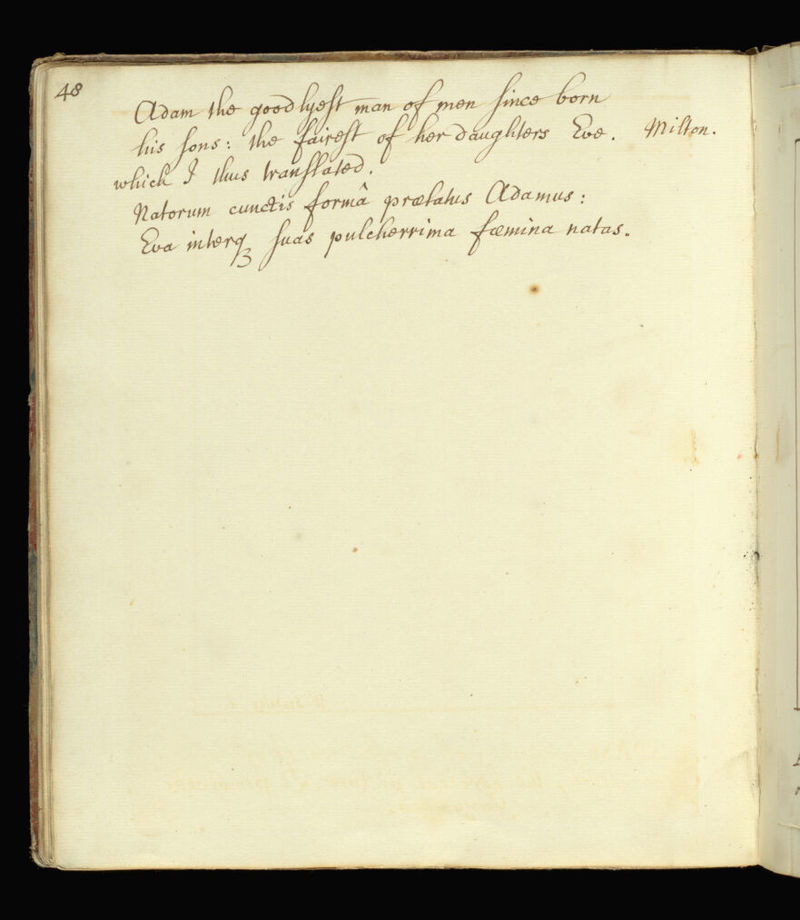 48
Adam the goodlyest man of men since born
his sons: the fairest of her daughters Eve. Milton.
which I thus translated.
Natorum cunctis formâ prælatus Adamus:
Eva interq₃ suas pulcherrima fæmina natas.